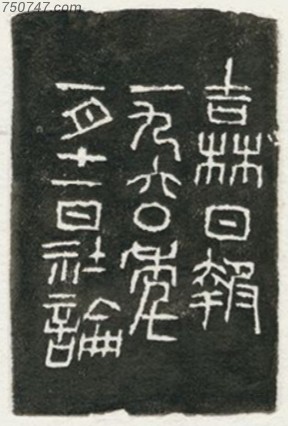 750747.com
吉林日報
一九六〇年
一月十一日社論